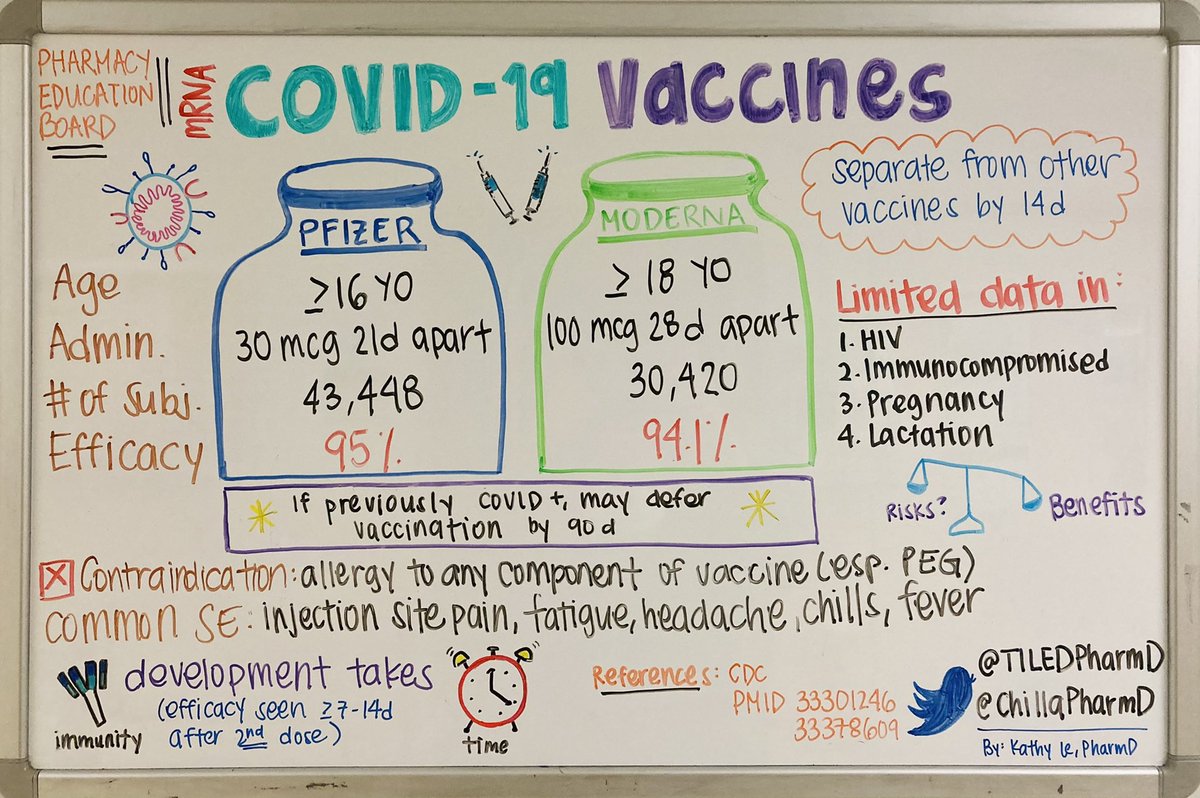 PHARMACY
EDUCATION
BOARD
MRNA
COVID-19 Vaccines
separate from other
vaccines by 14d
PFIZER
≥16 YO
30 mcg 21d apart
43,448
95%
MODERNA
≥ 18 YO
100 mcg 28d apart
30,420
94.1%
Age
Admin.
# of Subj.
Efficacy
Limited data in:
1. HIV
2. Immunocompromised
3. Pregnancy
4. Lactation
Risks?
Benefits
If previously COVID+, may defer
vaccination by 90d
X Contraindication: allergy to any component of vaccine (esp. PEG)
common SE: injection site pain, fatigue, headache, chills, fever
immunity
development takes
(efficacy seen ≥7-14d
after 2nd dose)
time
References: CDC
PMID 33301246
33378609
@TILEDPharmD
@ChillaPharmD
By: Kathy Le, PharmD